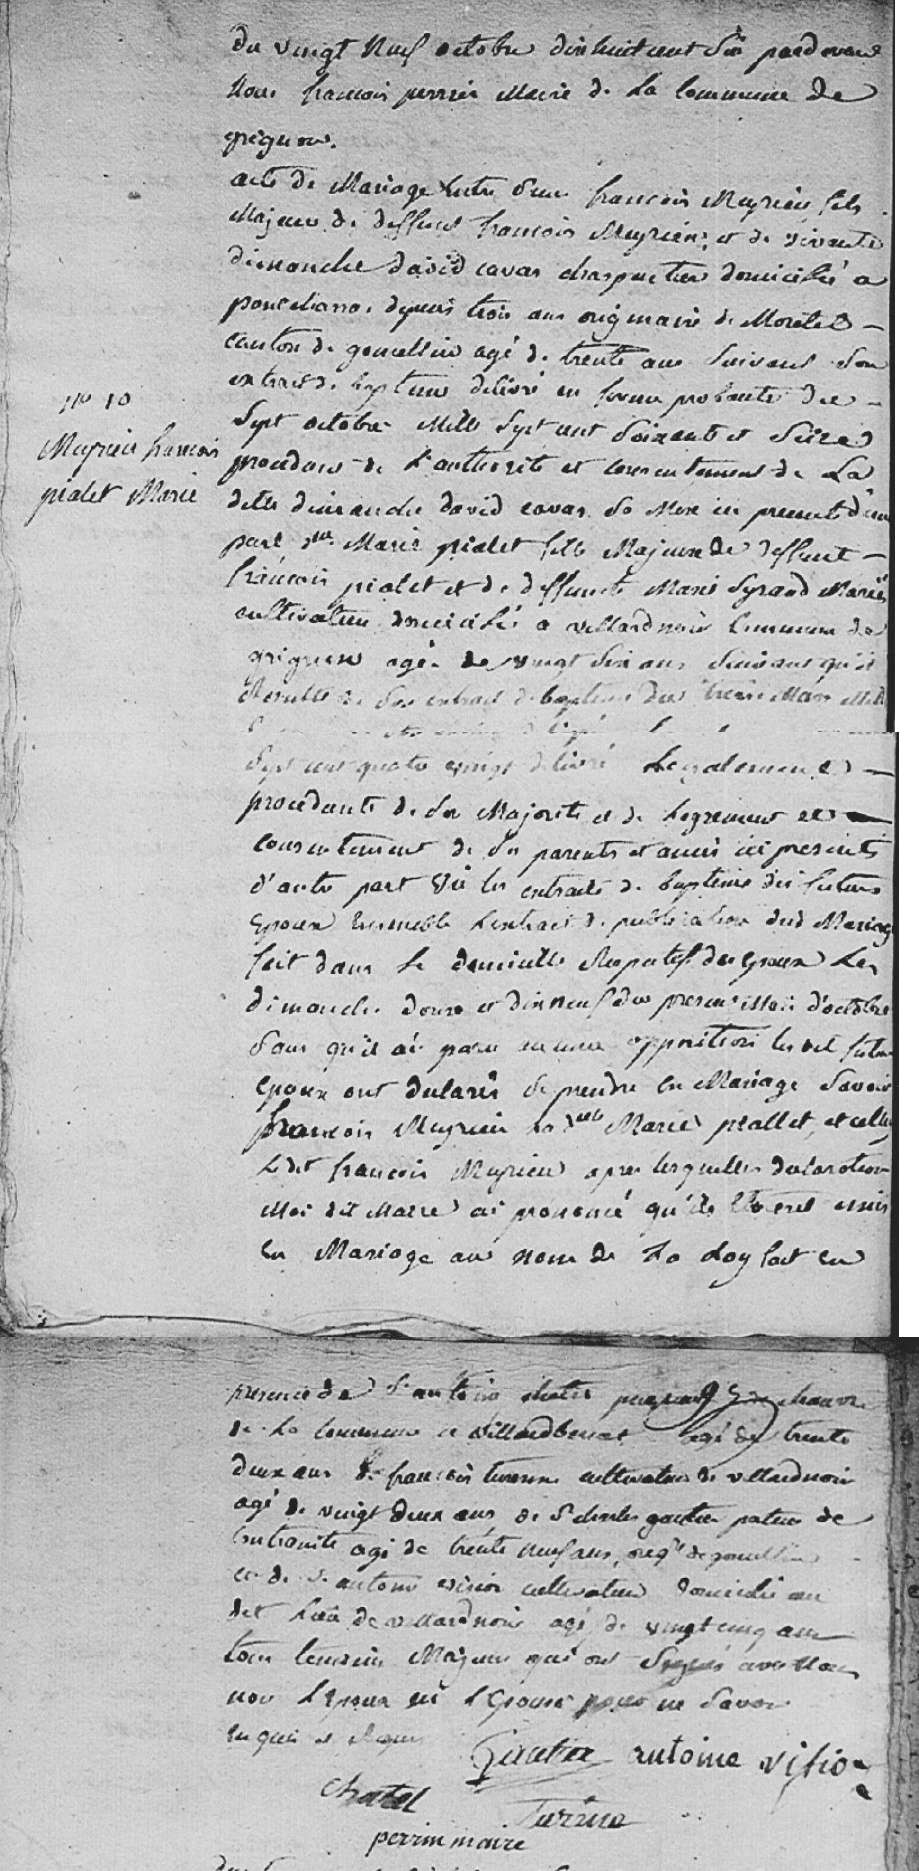 du vingt Neuf octobre dixhuit cent Six pardevant
Nous francois perrin Maire de La Commune de
grignon.
acte de Mariage Entre Sieur francois Meyrieu fils
Majeur de deffunt francois Meyrieu, et de vivante
dimanche david cavas charpentier domicilié a
pontcharra depuis trois ans originaire de Moretel
canton de goncellin agé de trente ans Suivant Son
extrait de bapteme delivré en forme probante du
Sept octobre Mille Sept cent Soixante et Seize
procedant de L'authorité et consentement de La
ditte dimanche david cavas Sa Mere ici presente d'une
part dlle Marie pialet fille Majeure de deffunt
francois pialet et de deffunte Marie Syrand Mariés
cultivateur domicilié a villardnoir Commune de
grignon agée de vingt Six ans Suivant qu'il
Resulte de Son extrait de bapteme du treize Mars Mille
Sept cent quatre vingt delivré Legalement
procedante de Sa Majorité et de Lagrement et
consentement de Ses parents et amis ici presents
d'autre part Vû les extraits de baptemes des futurs
Epoux Ensemble Lextrait de publication dud Mariage
fait dans Le domicille Respectif des Epoux Les
dimanche douze et dixneuf du present Mois d'octobre
Sans qu'il ai paru aucune opposition lesdit futur
Epoux ont declarés de prendre en Mariage Savoir
francois Meyrieu La dlle Marie piallet, et celle
Ledit francois Meyrieu apres lesquelles declaration
Moi dit Maire ai prononcé qu'ils Etoient unis
En Mariage au nom de La Loy fait en
No 10
Meyrieu francois
pialet Marie
presence de Sr antoine chatel
de La Commune de villardbenoit agé de trente
deux ans de francois turenne cultivateur de villardnoir
agé de vingt deux ans de Sr charles gautier
agé de trente Neuf ans,
et de Sr antoine visioz cultivateur domicilié au
dit Lieu de villardnoir agé de vingt cinq ans
tous temoins Majeurs qui ont Signés avec Nous
non L'Epoux ni L'Epouse pour ne Savoir
En qui et Requis
Gautier antoine visioz
Chatel
perrin maire